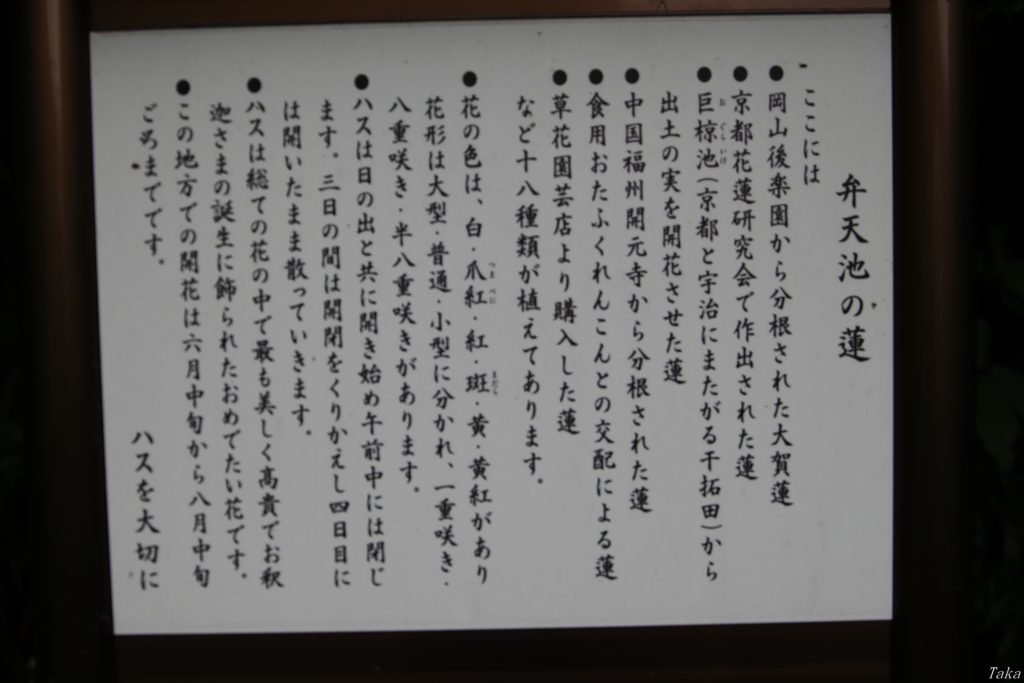 弁天池の蓮
ここには
●岡山後楽園から分根された大賀蓮
●京都花蓮研究会で作出された蓮
●巨椋池(京都と宇治にまたがる干拓田)から
出土の実を開花させた蓮
●中国福州開元寺から分根された蓮
●食用おたふくれんこんとの交配による蓮
●草花園芸店より購入した蓮
など十八種類が植えてあります。
●花の色は、白・爪紅・紅・斑・黄・黄紅があり
花形は大型・普通・小型に分かれ、一重咲き・
八重咲き・半八重咲きがあります。
●ハスは日の出と共に開き始め午前中には閉じ
ます。三日の間は開閉をくりかえし四日目に
は開いたまま散っていきます。
●ハスは総ての花の中で最も美しく高貴でお釈
迦さまの誕生に飾られたおめでたい花です。
●この地方での開花は六月中旬から八月中旬
ごろまでです。
ハスを大切に
Taka